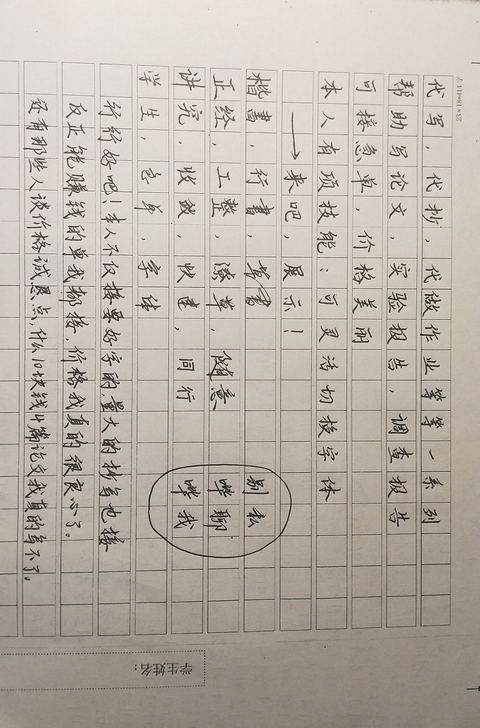 代写，代抄，代做作业等等一系列
帮助写论文，实验报告，调查报告
可接急单，价格美丽
本人有项技能：可灵活切换字体
→来吧，展示！
楷書，行書，草書
正经，工整，潦草，随意
讲究，收敛，快速，同行
学生，字体
别私
聊
我
行行好吧！本人不仅接要好字的，量大的抄写也接
反正能赚钱的单我都接，价格我真的很良心了。
还有那些人谈价格诚恳点，什么10块钱4篇论文我真的当不了。
学生姓名：